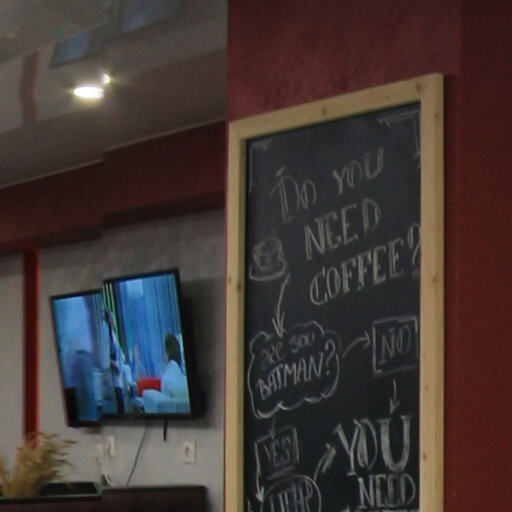 DO YOU
NEED
COFFEE?
ARE YOU
BATMAN?
NO
YES
YOU
NEED